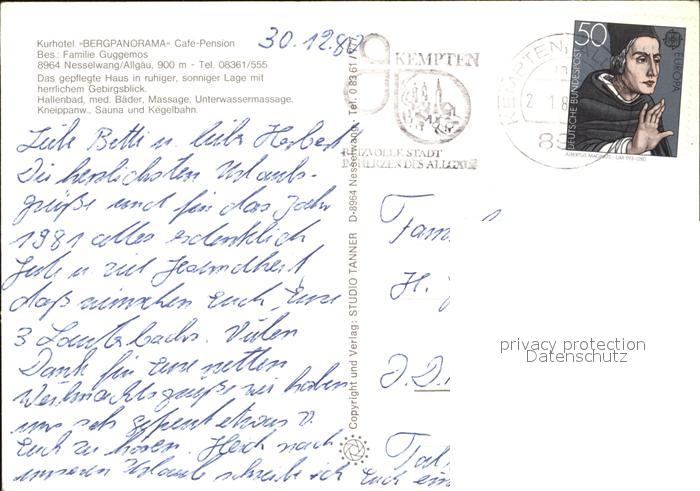 Kurhotel »BERGPANORAMA« Cafe-Pension
Bes.: Familie Guggemos
8964 Nesselwang/Allgäu, 900 m - Tel. 08361/555
Das gepflegte Haus in ruhiger, sonniger Lage mit
herrlichem Gebirgsblick.
Hallenbad, med. Bäder, Massage, Unterwassermassage.
Kneippanw., Sauna und Kegelbahn.
30.12.80
Liebe Betti u. lieber Herbert
Die herzlichsten Urlaubs-
grüße und für das Jahr
1981 alles erdenklich
Gute u. viel Gesundheit
daß wünschen Euch, Eure
3 Lauterbachs. Vielen
Dank für Eure netten
Weihnachtsgrüße wir haben
uns sehr gefreut etwas v.
Euch zu hören. Gleich nach
unserem Urlaub schreibe ich Euch ein
Copyright und Verlag: STUDIO TANNER D-8964 Nesselwang Tel. 0 83 61 /
KEMPTEN
REIZVOLLE STADT
IM HERZEN DES ALLGÄUS
KEMPTEN
2. 1.8
50
DEUTSCHE BUNDESPOST
EUROPA
ALBERTUS MAGNUS · UM 1193-1280
Fam.
H.
privacy protection
Datenschutz